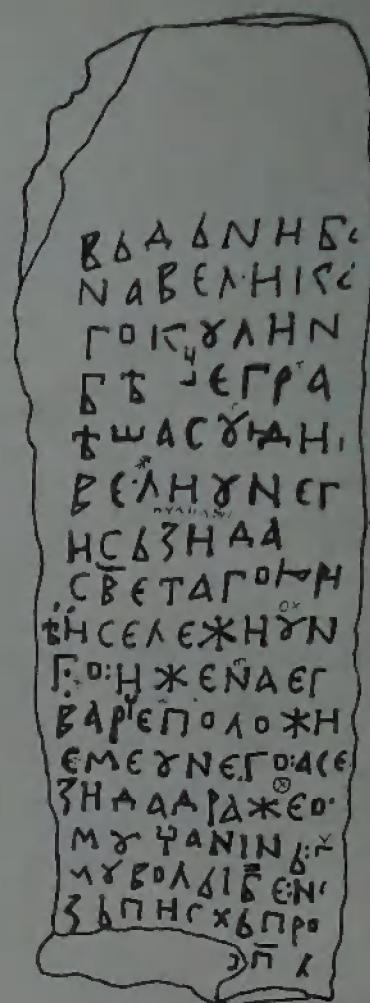 ВЬДЬNНБ
NАВЕЛНК
ГОКꙊЛНN
БѢ ЕГРА
ѢШАСꙊДН
ВЕЛНꙊNЕГ
НСЬЗНДА
СВЕТАГОЮРН
ѢНСЕЛЕЖНꙊN
ГО:НЖЕNАЕГ
ВАРЕПОЛОЖН
ЕМЕꙊNЕГО:АСЕ
ЗНДАДРАЖЕО
МꙊЧАNІNЬ:
МꙊВОЛЬІБЕ:N
ЗЬПНСХЬПРО
П